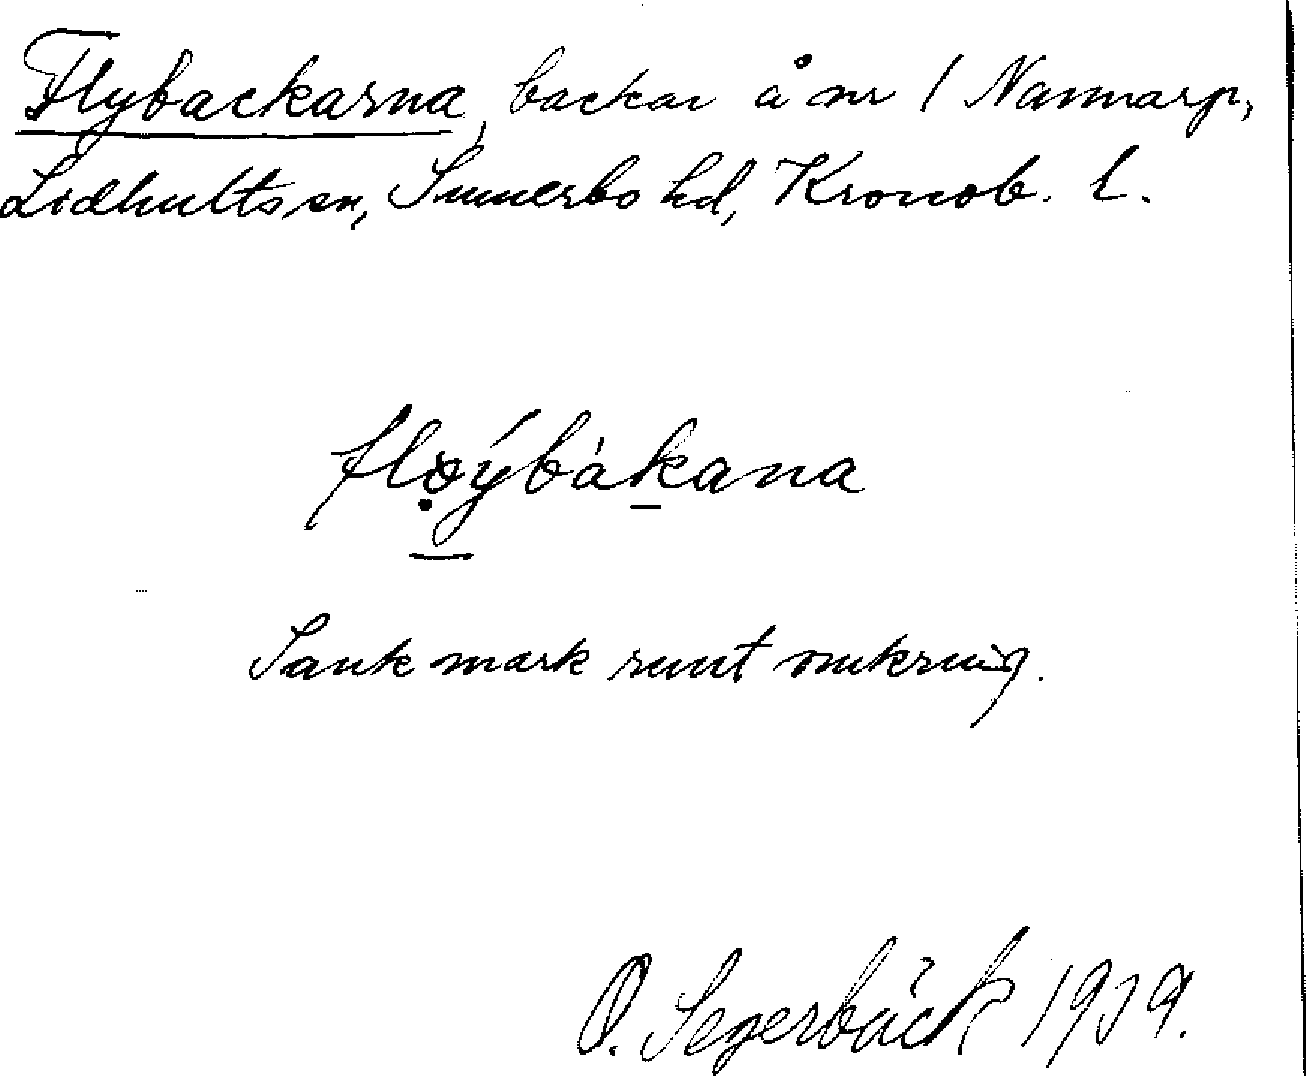 Flybackarna, backar å nr 1 Nannarp,
Lidhults sn, Sunnerbo hd, Kronob. l.
fløýbàkana
Sank mark runt omkring.
O. Segerbäck 1919.